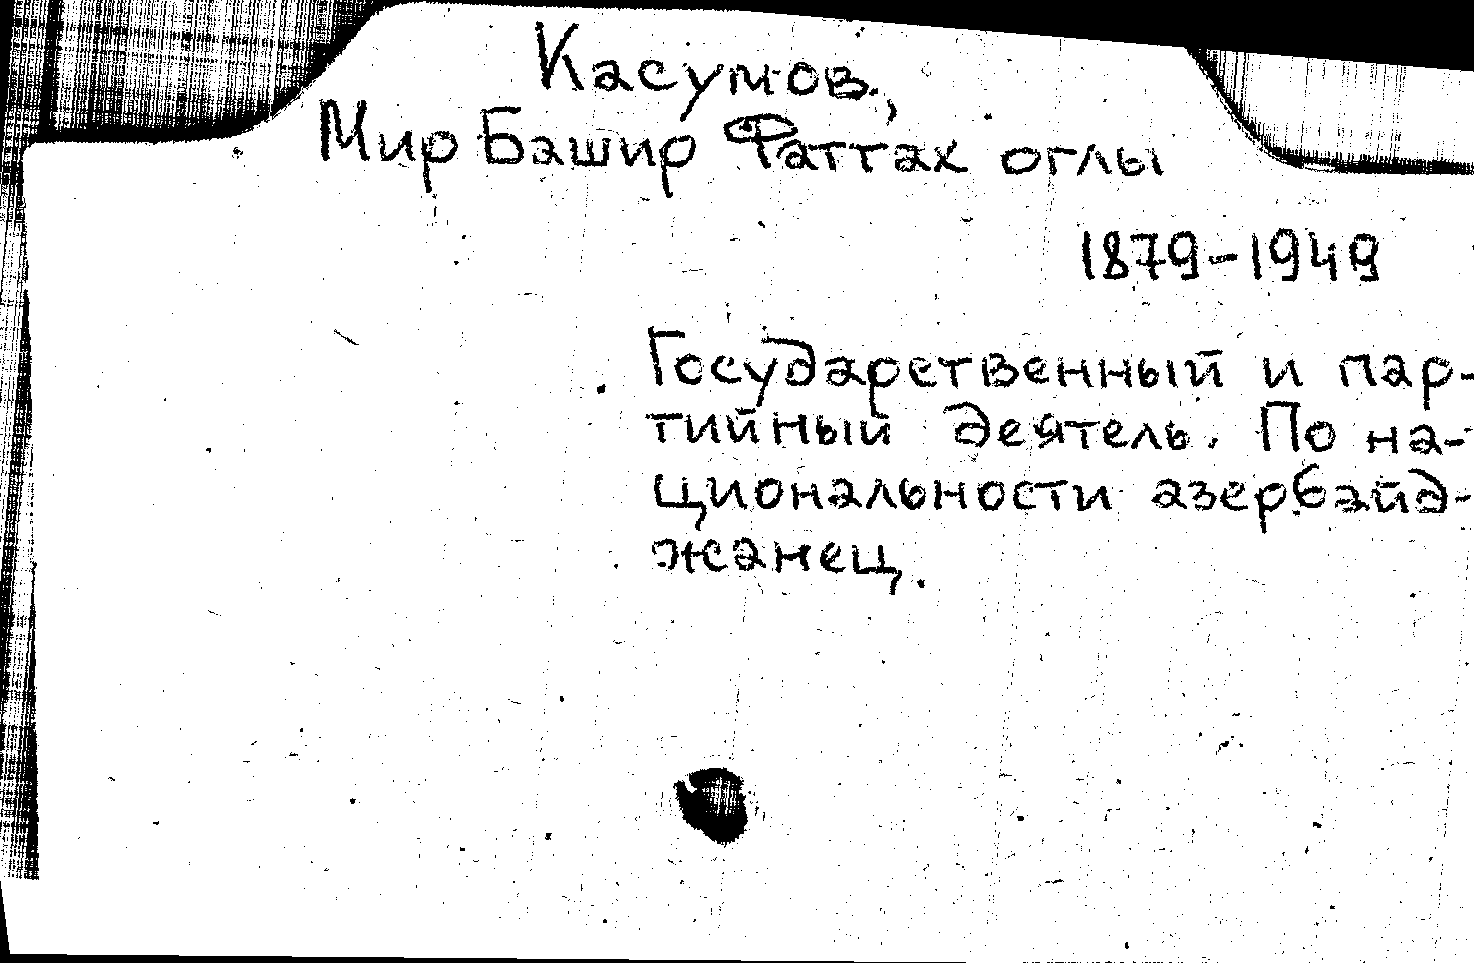 Касумов,
Мир Башир Фаттах оглы
1879-1949
Государственный и пар-
тийный деятель. По на-
циональности азербайд-
жанец.